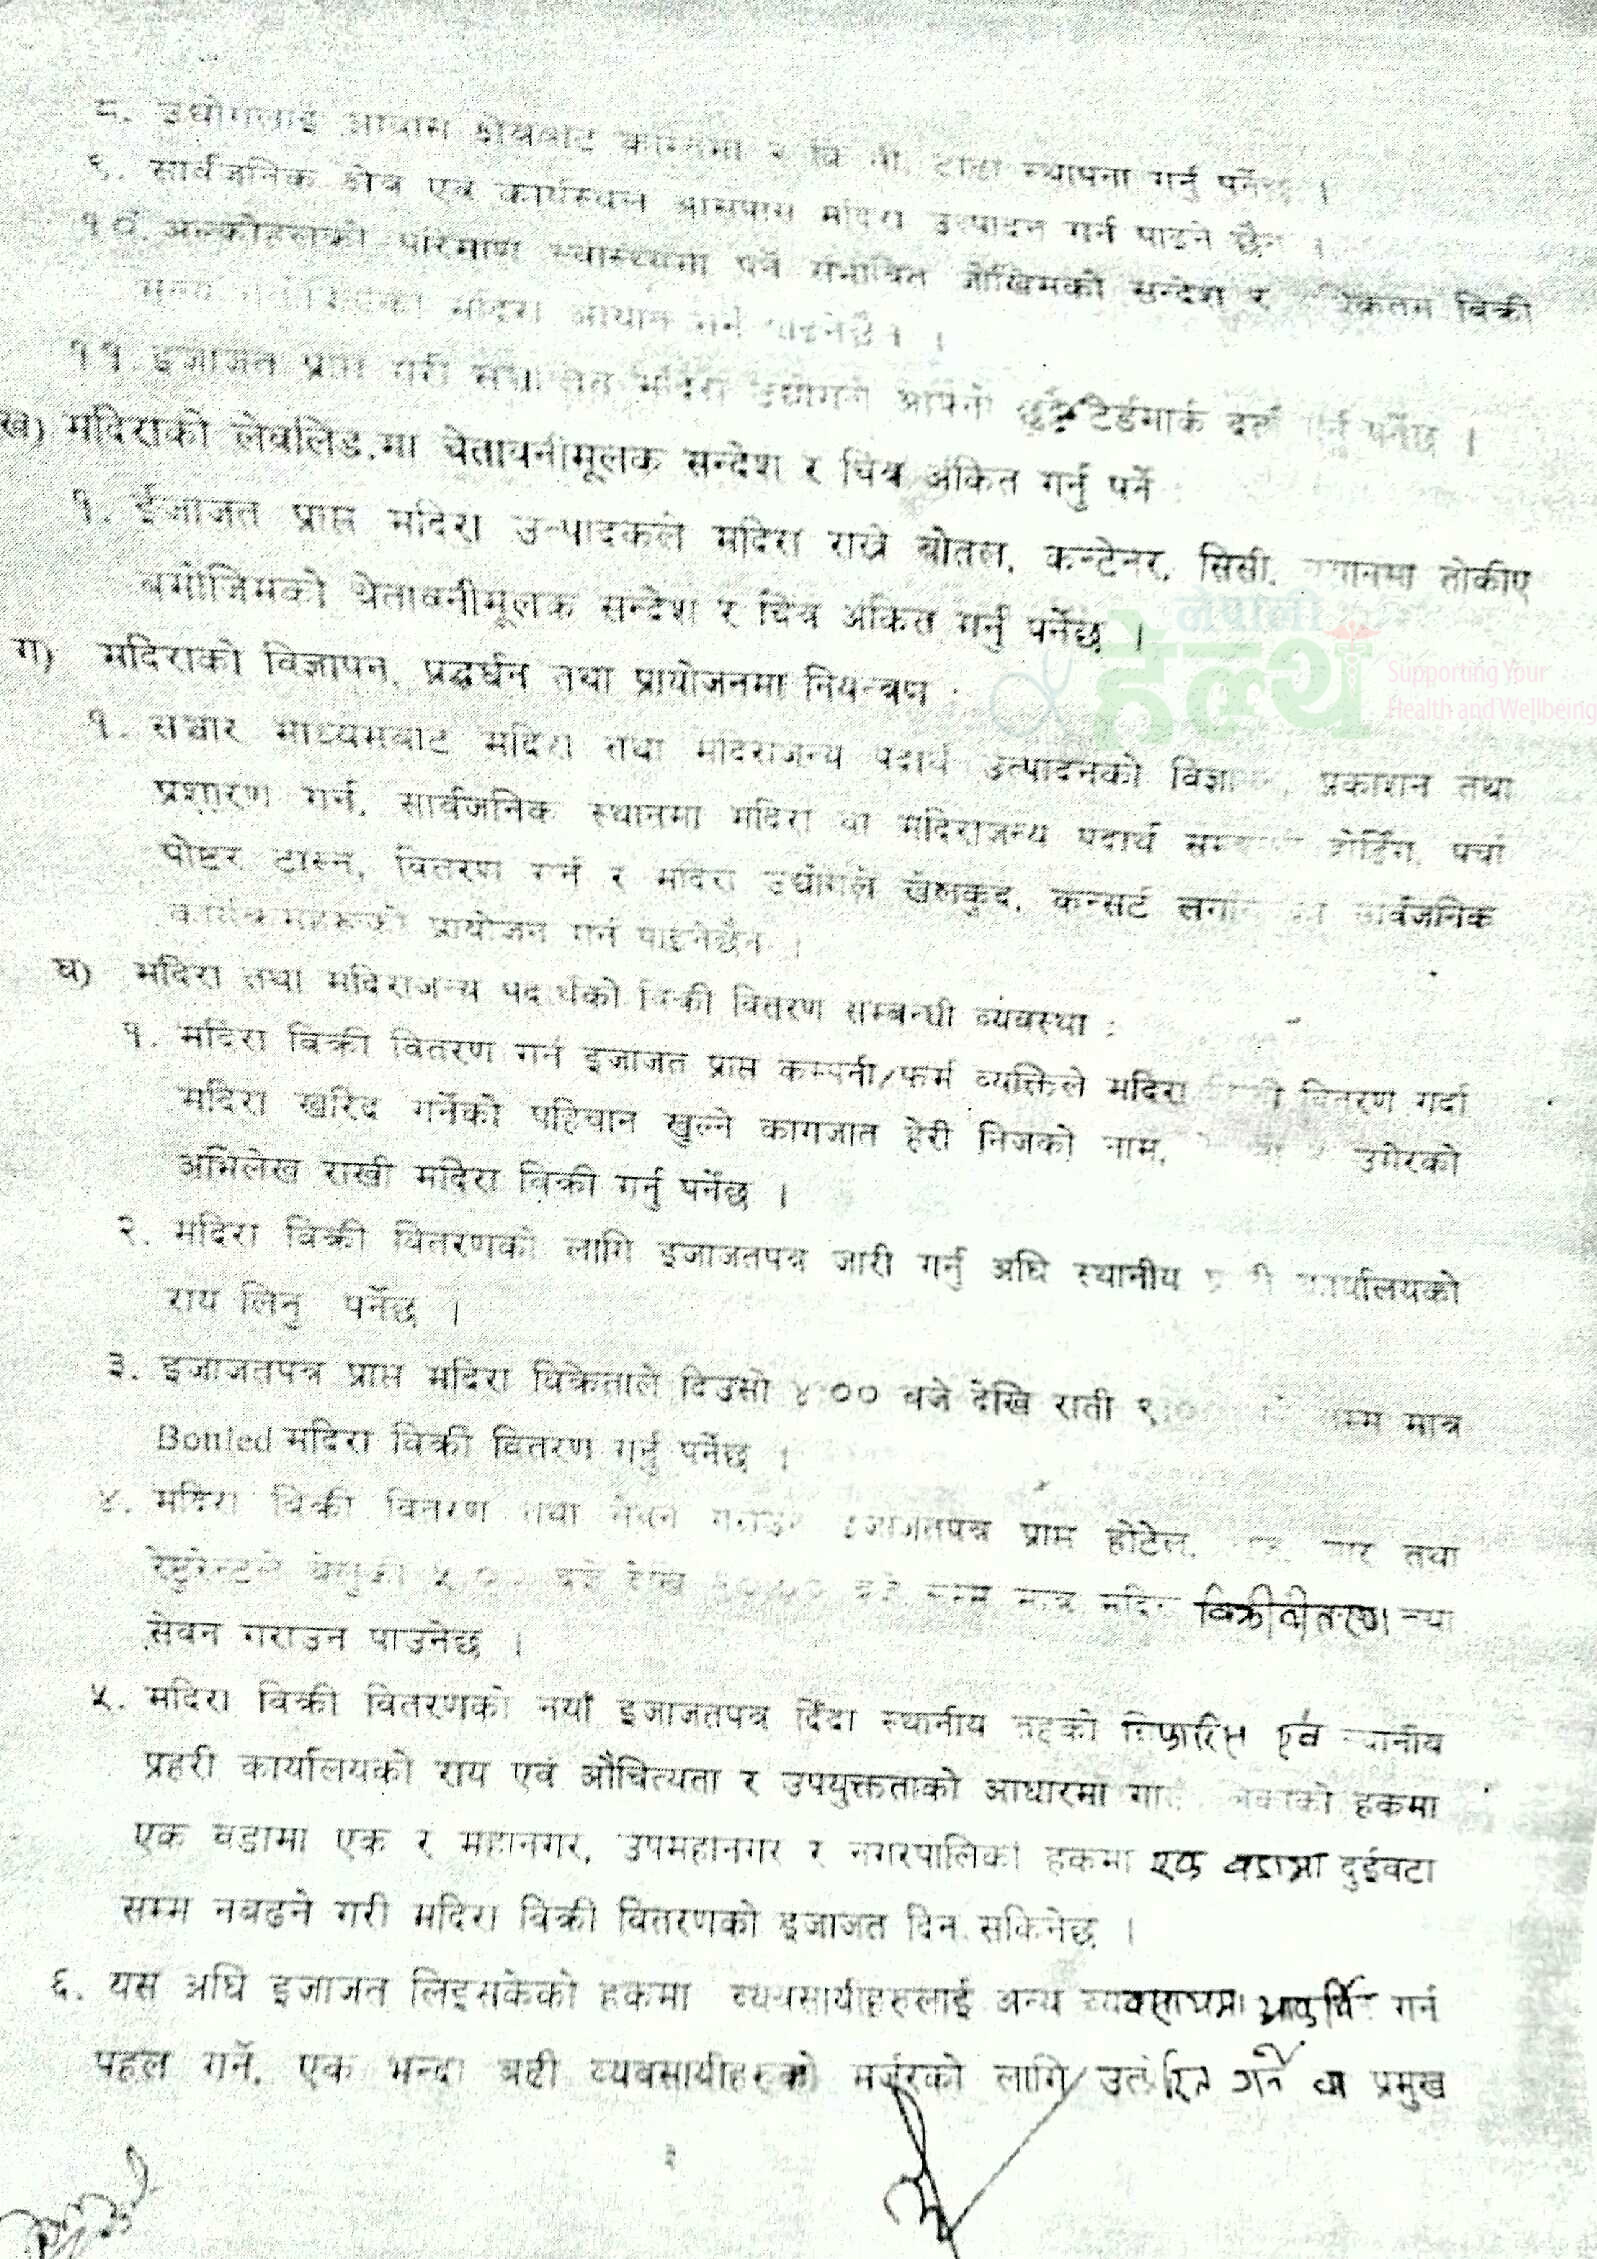 ८. उद्योगलाई आवास क्षेत्रबाट कम्तिमा २ कि मी. टाढा स्थापना गर्नु पर्नेछ ।
९. सार्वजनिक क्षेत्र एवं कार्यस्थल आसपास मदिरा उत्पादन गर्न पाइने छैन ।
१०. अल्कोहलको परिमाण स्वास्थ्यमा पर्ने संभावित जोखिमको सन्देश र बिक्री
मूल्य मदिरा आयात गर्न पाइनेछैन ।
११. इजाजत प्राप्त गरी मदिरा उद्योगले आफ्नो छुट्टै टेर्डमार्क दर्ता गर्नु पर्नेछ ।
ख) मदिराको लेवलिङ.मा चेतावनीमूलक सन्देश र चित्र अंकित गर्नु पर्ने
१. ईजाजत प्राप्त मदिरा उत्पादकले मदिरा राख्ने बोतल, कन्टेनर, सिसी, तोकीए
बमोजिमको चेतावनीमूलक सन्देश र चित्र अंकित गर्नु पर्नेछ ।
नेपाल
हेल्थ
Supporting Your
Health and Wellbeing
ग) मदिराको विज्ञापन, प्रद्धर्धन तथा प्रायोजनमा नियन्त्रण
१. सञ्चार माध्यमबाट मदिरा तथा मदिराजन्य पदार्थ उत्पादनको विज्ञापन, प्रकाशन तथा
प्रशारण गर्न, सार्वजनिक स्थानमा मदिरा वा मदिराजन्य पदार्थ होर्डिंग, पर्चा
पोष्टर टास्न, वितरण गर्न र मदिरा उद्योगले खेलकुद, कन्सर्ट सार्वजनिक
कार्यक्रमहरुको प्रायोजन गर्न पाइनेछैन ।
घ) मदिरा तथा मदिराजन्य पदार्थको बिक्री वितरण सम्बन्धी व्यवस्था :
१. मदिरा बिक्री वितरण गर्न इजाजत प्राप्त कम्पनी/फर्म व्यक्तिले मदिरा वितरण गर्दा
मदिरा खरिद गर्नेको पहिचान खुल्ने कागजात हेरी निजको नाम, उमेरको
अभिलेख राखी मदिरा बिक्री गर्नु पर्नेछ ।
२. मदिरा बिक्री वितरणको लागि इजाजतपत्र जारी गर्नु अघि स्थानीय कार्यालयको
राय लिनु पर्नेछ ।
३. इजाजतपत्र प्राप्त मदिरा विक्रेताले दिउसो ४:०० बजे देखि राती सम्म मात्र
Bontled मदिरा बिक्री वितरण गर्नु पर्नेछ ।
४. मदिरा बिक्री वितरण तथा सेवन गराउन इजाजतपत्र प्राप्त होटेल, बार तथा
रेष्टुरेन्टले बेलुकी ५:०० बजे देखि बजे सम्म मात्र मदिरा बिक्री वितरण
सेवन गराउन पाउनेछ ।
५. मदिरा बिक्री वितरणको नयाँ इजाजतपत्र दिंदा स्थानीय तहको सिफारिस एवं स्थानीय
प्रहरी कार्यालयको राय एवं औचित्यता र उपयुक्तताको आधारमा हकमा
एक वडामा एक र महानगर, उपमहानगर र नगरपालिका हकमा एक वडामा दुईवटा
सम्म नबढ्ने गरी मदिरा बिक्री वितरणको इजाजत दिन सकिनेछ ।
६. यस अघि इजाजत लिइसकेको हकमा व्यवसायीहरुलाई अन्य व्यवसायमा आकर्षित गर्न
पहल गर्ने, एक भन्दा बढी व्यवसायीहरुको मर्जरको लागि उत्प्रेरित गर्ने वा प्रमुख
३